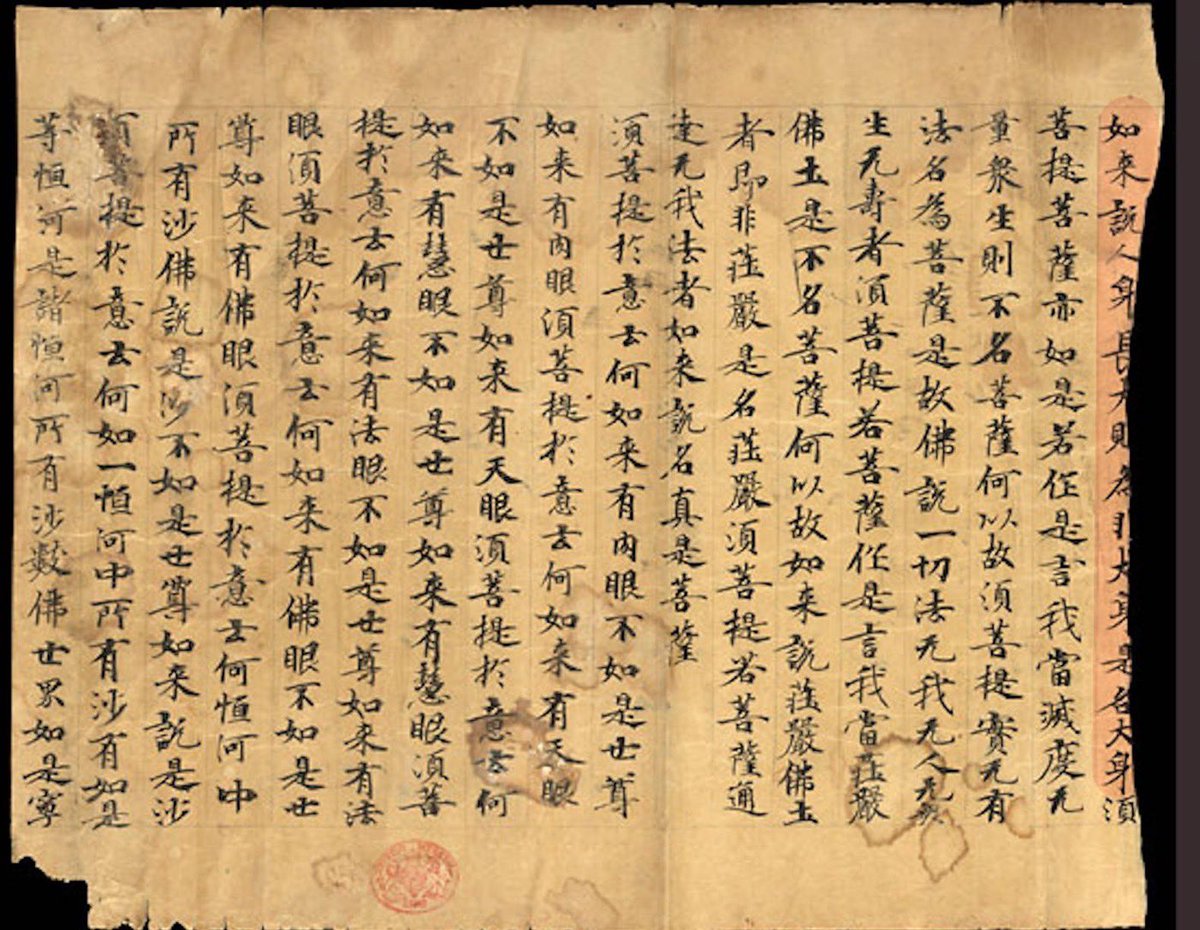 如来說人身長大則為非大身是名大身須
菩提菩薩亦如是若作是言我當滅度无
量衆生則不名菩薩何以故須菩提實无有
法名為菩薩是故佛說一切法无我无人无衆
生无壽者須菩提若菩薩作是言我當莊嚴
佛土是不名菩薩何以故如来說莊嚴佛土
者即非莊嚴是名莊嚴須菩提若菩薩通
達无我法者如来說名真是菩薩
須菩提於意云何如来有肉眼不如是世尊
如来有肉眼須菩提於意云何如来有天眼
不如是世尊如来有天眼須菩提於意云何
如来有慧眼不如是世尊如来有慧眼須菩
提於意云何如来有法眼不如是世尊如来有法
眼須菩提於意云何如来有佛眼不如是世
尊如来有佛眼須菩提於意云何恒河中
所有沙佛說是沙不如是世尊如来說是沙
須菩提於意云何如一恒河中所有沙有如是
等恒河是諸恒河所有沙數佛世界如是寧